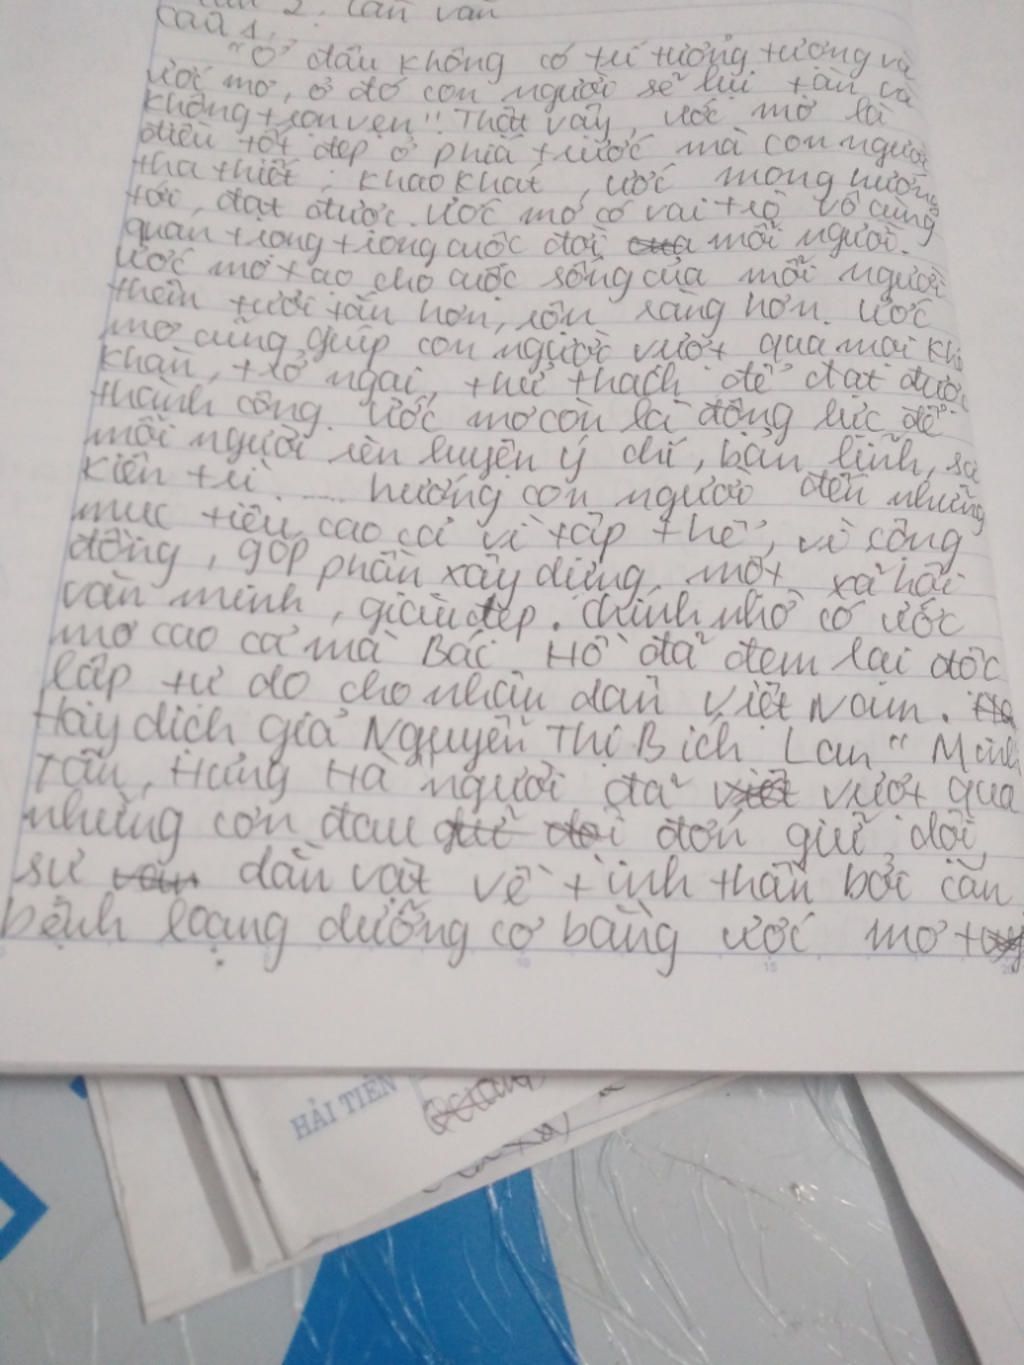 2. Làn văn
Câu 1.
"Ở đâu không có trí tưởng tượng và
ước mơ, ở đó con người sẽ lụi tàn và
không trọn vẹn". Thật vậy, ước mơ là
điều tốt đẹp ở phía trước mà con người
tha thiết, khao khát, ước mong hướng
tới, đạt được. Ước mơ có vai trò vô cùng
quan trọng trong cuộc đời mỗi người.
Ước mơ tạo cho cuộc sống của mỗi người
thêm tươi tắn hơn, rộn ràng hơn. Ước
mơ cũng giúp con người vượt qua mọi khó
khăn, trở ngại, thử thách để đạt được
thành công. Ước mơ còn là động lực để
mỗi người rèn luyện ý chí, bản lĩnh, sự
kiên trì..... hướng con người đến những
mục tiêu cao cả vì tập thể, vì cộng
đồng, góp phần xây dựng một xã hội
văn minh, giàu đẹp. Chính nhờ có ước
mơ cao cả mà Bác Hồ đã đem lại độc
lập tự do cho nhân dân Việt Nam.
Hay dịch giả Nguyễn Thị Bích Lan " Minh
Tân, Hưng Hà người đã vượt qua
những cơn đau đớn giữ dội,
sự dằn vặt về tinh thần bởi căn
bệnh loạng dưỡng cơ bằng ước mơ
HẢI TIẾN